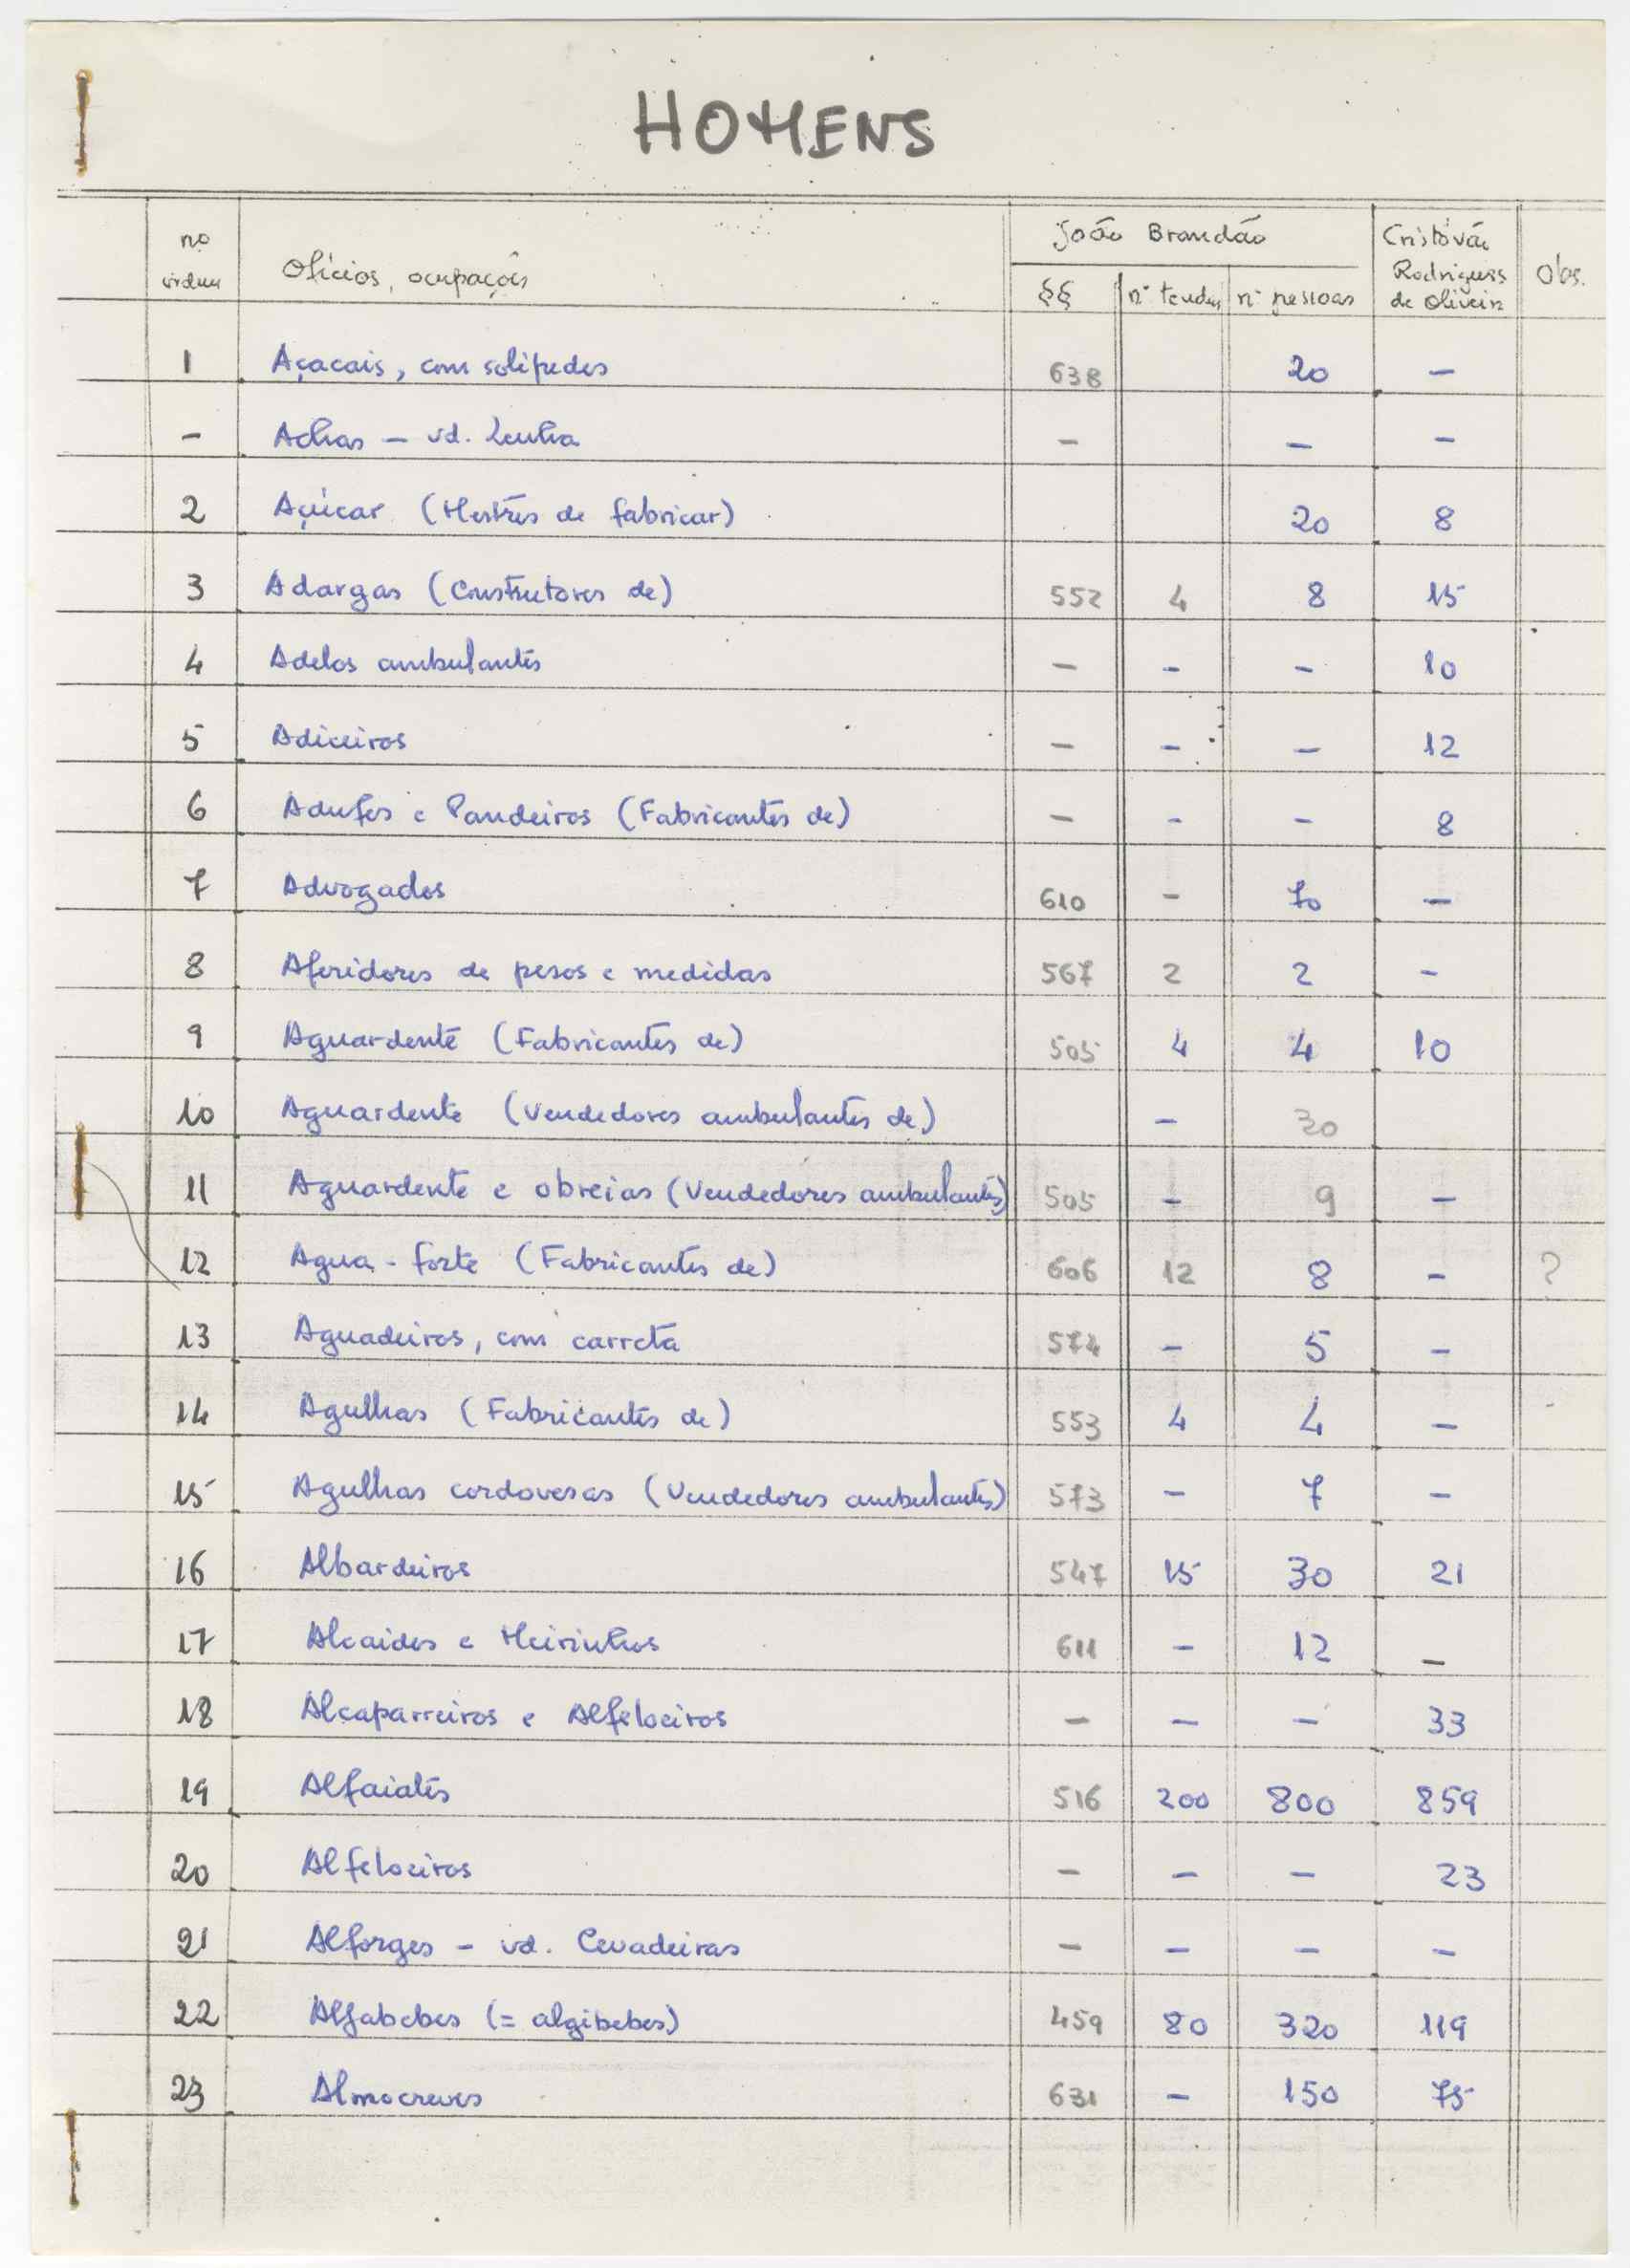 HOMENS
nº ordem
Ofícios, ocupações
João Brandão
§§
nº tendas
nº pessoas
Cristóvão
Rodrigues
de Oliveira
Obs.
1 Açacais, com solípedes 638 20 –
– Achas – vd. Lenha – – –
2 Açúcar (Mestres de fabricar) 20 8
3 Adargas (Construtores de) 552 4 8 15
4 Adelos ambulantes – – – 10
5 Adiceiros – – – 12
6 Adufes e Pandeiros (Fabricantes de) – – – 8
7 Advogados 610 – 70 –
8 Aferidores de pesos e medidas 567 2 2 –
9 Aguardente (Fabricantes de) 505 4 4 10
10 Aguardente (Vendedores ambulantes de) – 30
11 Aguardente e obreias (Vendedores ambulantes) 505 – 9 –
12 Agua-forte (Fabricantes de) 606 12 8 – ?
13 Aguadeiros, com carreta 574 – 5 –
14 Agulhas (Fabricantes de) 553 4 4 –
15 Agulhas cordovesas (Vendedores ambulantes) 573 – 7 –
16 Albardeiros 547 15 30 21
17 Alcaides e Meirinhos 611 – 12 –
18 Alcaparreiros e Alfeloeiros – – – 33
19 Alfaiates 516 200 800 859
20 Alfeloeiros – – – 23
21 Alforges – vd. Cevadeiras – – – –
22 Algabebes (= algibebes) 459 80 320 119
23 Almocreves 631 – 150 75